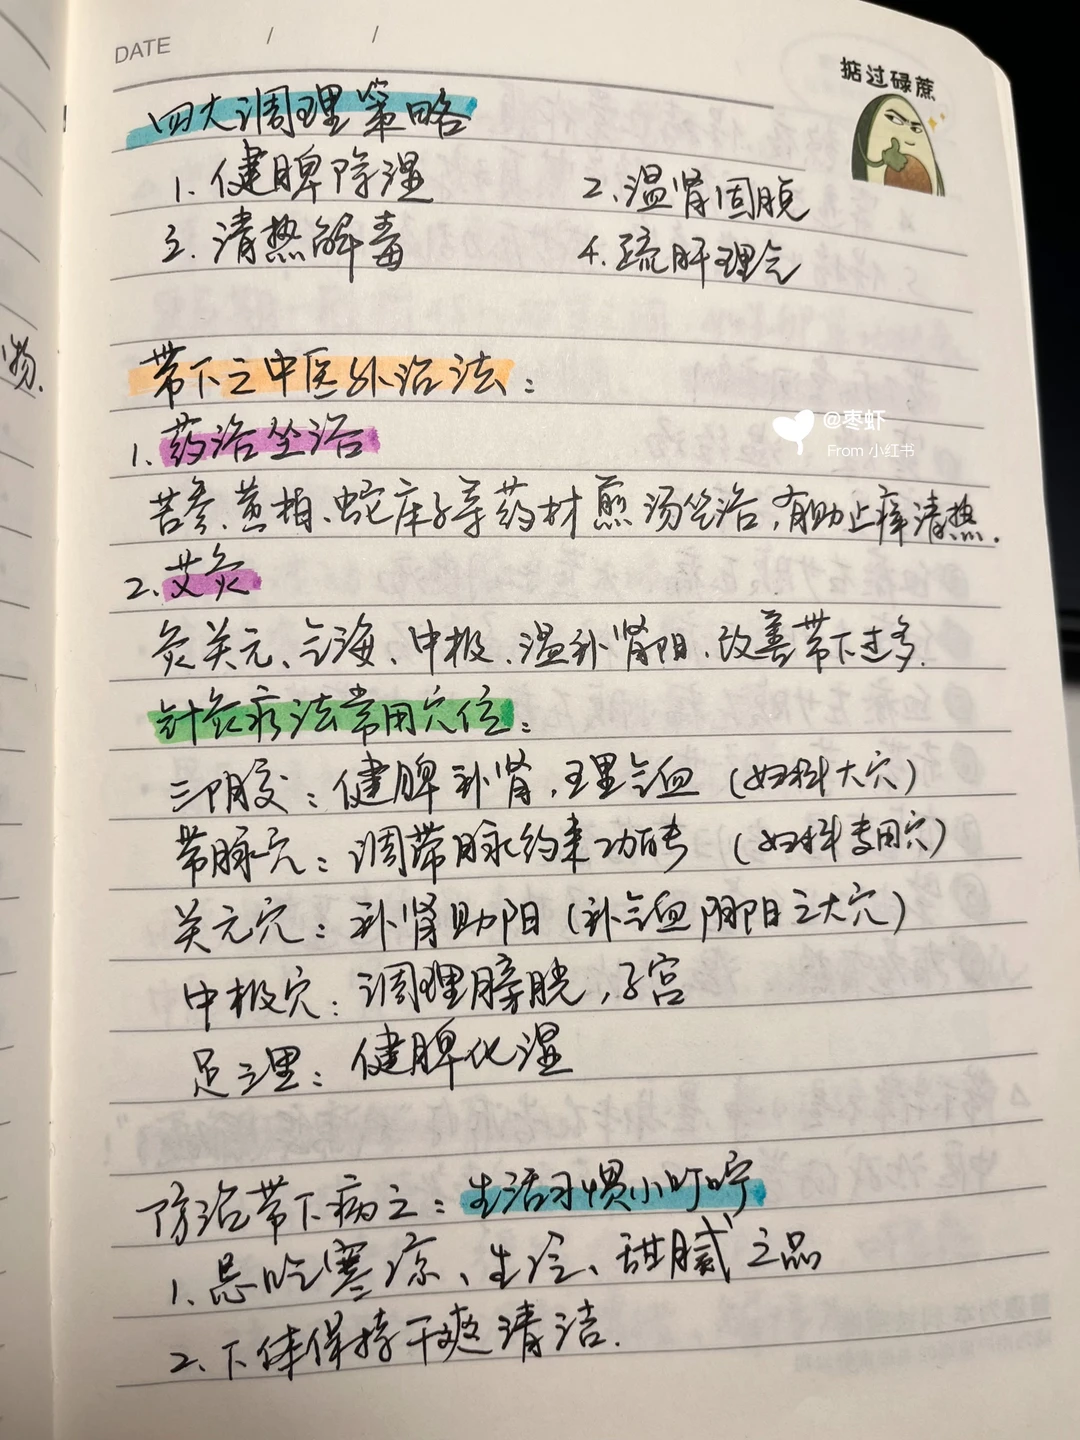 DATE / /
掂过碌蔗
四大调理策略
1. 健脾除湿 2. 温肾固脱
3. 清热解毒 4. 疏肝理气
物.
带下之中医外治法：
@枣虾
From 小红书
1. 药浴坐浴
苦参、黄柏、蛇床子等药材煎汤坐浴，有助止痒清热.
2. 艾灸
灸关元、气海、中极、温补肾阳、改善带下过多.
针灸疗法常用穴位：
三阴交：健脾补肾，理气血（妇科大穴）
带脉穴：调带脉约束功能（妇科专用穴）
关元穴：补肾助阳（补气血阴阳之大穴）
中极穴：调理膀胱，子宫
足三里：健脾化湿
防治带下病之：生活习惯小叮咛
1. 忌吃寒凉、生冷、甜腻之品
2. 下体保持干爽清洁.